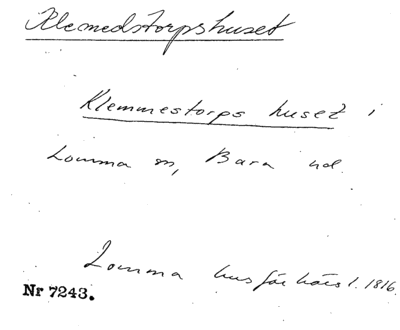 Klemedstorpshuset
Klemmestorps huset i
Lomma sn, Bara hd.
Lomma husförhörsl. 1816.
Nr 7243.